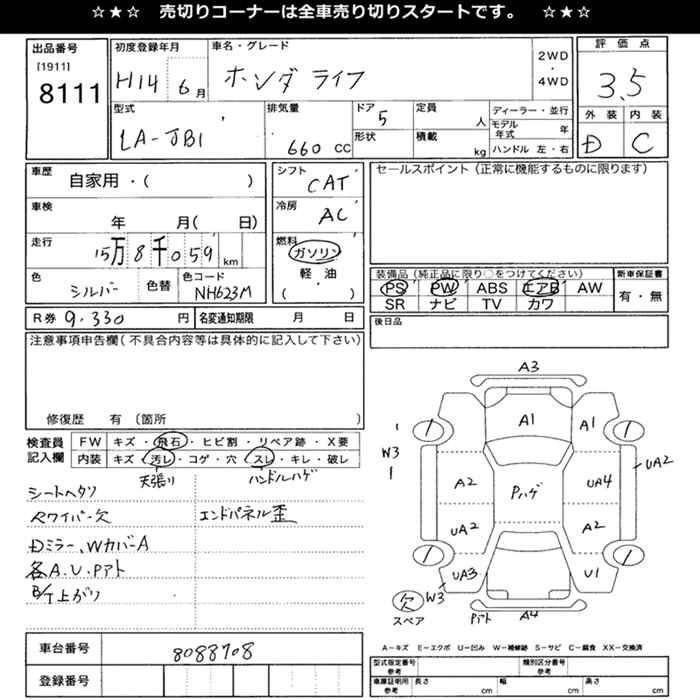 ☆★☆ 売切りコーナーは全車売り切りスタートです。 ☆★☆
出品番号
[1911]
8111
初度登録年月
H14年6月
車名・グレード
ホンダ ライフ
2WD
・
4WD
評価点
3.5
外装 内装
D C
型式
LA-JB1
排気量
660 cc
ドア 5
形状
定員 人
積載 kg
ディーラー・並行
モデル年式 年
ハンドル 左・右
車歴
自家用・( )
車検
年 月( 日)
走行
15万8千059 km
色 シルバー
色替
色コード NH623M
シフト CAT
冷房 AC
燃料
ガソリン
軽・油
( )
セールスポイント(正常に機能するものに限ります)
装備品(純正品に限り○をつけてください)
PS PW ABS エアB AW
SR ナビ TV カワ
新車保証書
有・無
R券 9.330 円
名変通知期限 月 日
後日品
注意事項申告欄(不具合内容等は具体的に記入して下さい)
修復歴 有 (箇所
検査員記入欄
FW キズ・飛石・ヒビ割・リペア跡・X要
内装 キズ・汚レ・コゲ・穴・スレ・キレ・破レ
天張り ハンドルハゲ
シートヘタリ
Rワイパー欠 エンドパネル歪
Dミラー、Wカバー A
各A.U.Pアト
下上がり
A3
A1
A1
W3
A2
Pハゲ
UA4
UA2
UA2
A2
UA3
U1
W3
欠
スペア
Pアト A4
A-キズ E-エクボ U-凹み W-補修跡 S-サビ C-腐食 XX-交換済
車台番号 8088708
登録番号
型式指定番号 参考
類別区分番号 参考
車庫証明用 参考
長さ cm
幅 cm
高さ cm